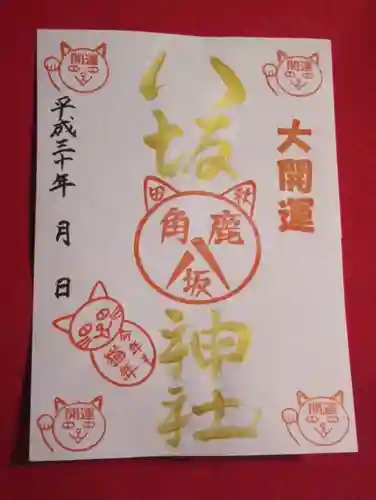 大開運
八坂神社
秋田
鹿角
八坂
平成三十年 月 日
今年は猫年
開運
開運
開運
開運